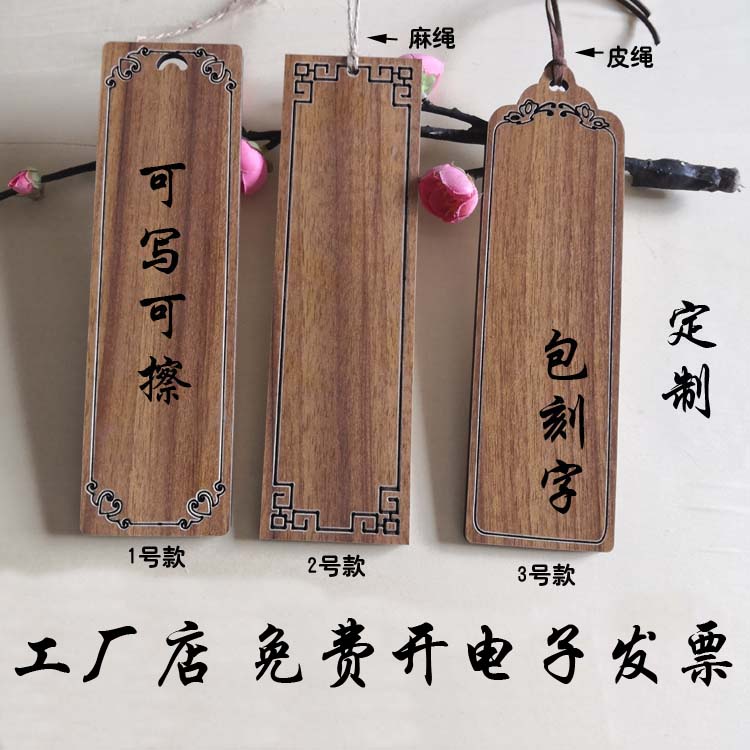 麻绳
皮绳
可写可擦
包刻字
定制
1号款
2号款
3号款
工厂店 免费开电子发票